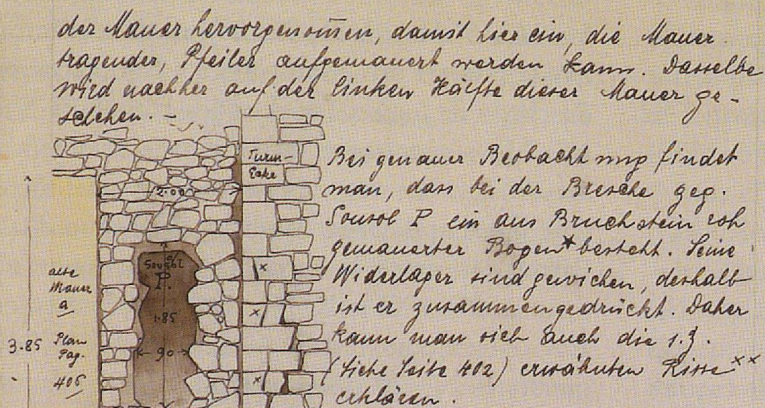 der Mauer hervorgenom̄en, damit hier ein, die Mauer
tragender, Pfeiler aufgemauert werden kann. Dasselbe
wird nachher auf der linken Hälfte dieser Mauer ge-
schehen. -
Turm-
Ecke
2.00
Bei genauer Beobachtung findet
man, dass bei der Bresche geg.
Sousol P ein aus Bruchstein roh
gemauerter Bogen* besteht. Seine
Widerlager sind gewichen, deshalb
ist er zusammengedrückt. Daher
kann man sich auch die s.Z.
(siehe Seite 402) erwähnten Risse xx
erklären.
P.
1.85
90
alte
Mauer
a
Plan
Pag.
406
3.85
x
x
x